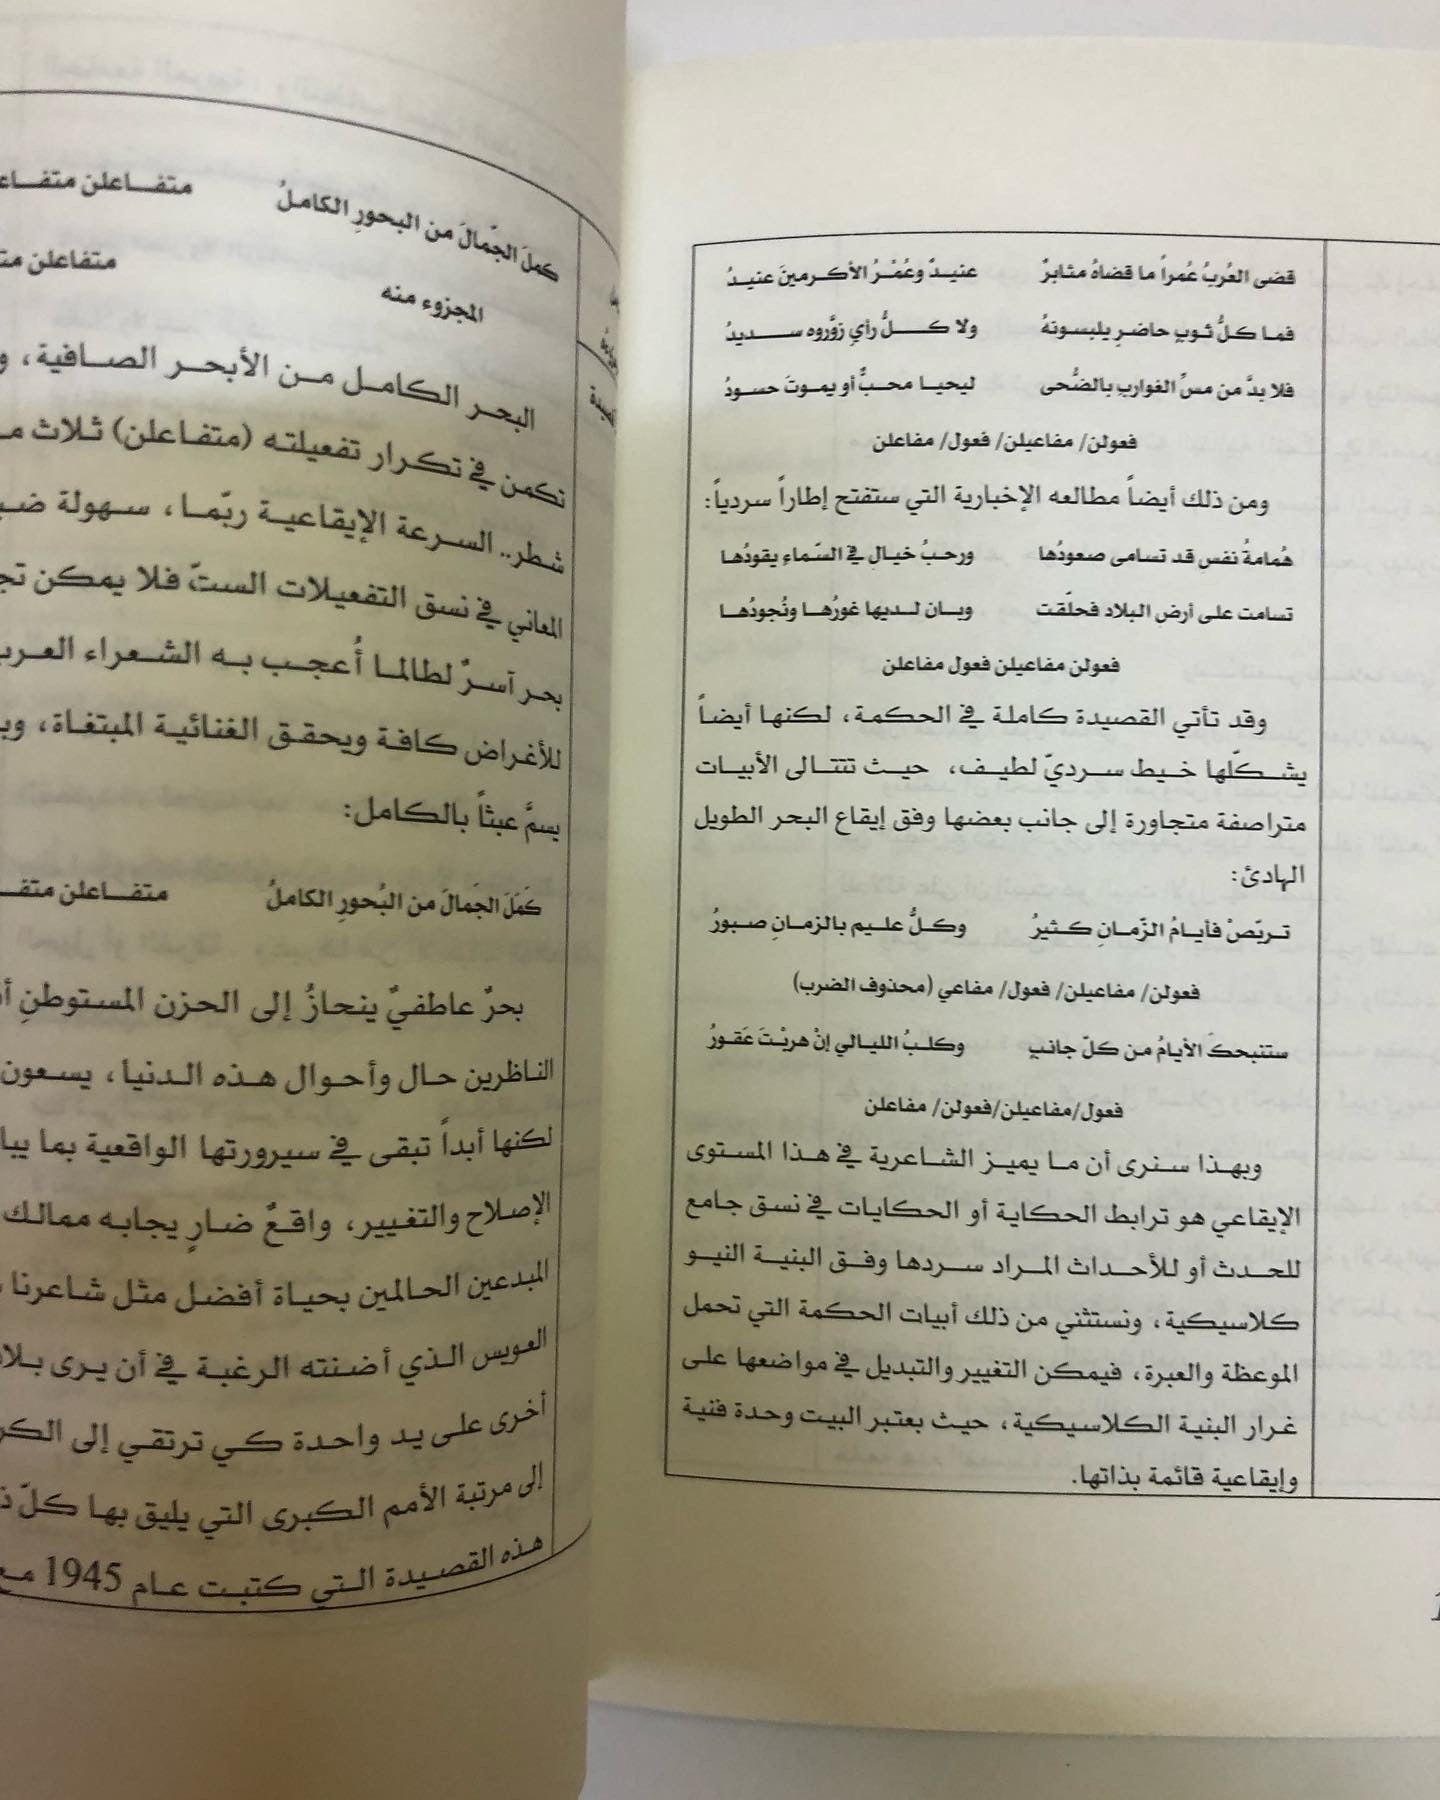 قضى العُربُ عُمراً ما قضاهُ مثابرٌ عنيدٌ وعُمْرُ الأكرمينَ عنيدُ
فما كلُّ ثوبٍ حاضرٍ يلبسونهُ ولا كلُّ رأيٍ زوَّروه سديدُ
فلا بدَّ من مسِّ الغواربِ بالضُّحى ليحيا محبٌّ أو يموتَ حسودُ
فعولن/ مفاعيلن/ فعول/ مفاعلن
ومن ذلك أيضاً مطالعه الإخبارية التي ستفتح إطاراً سردياً:
هُمامةُ نفس قد تسامى صعودُها ورحبُ خيالٍ في السّماءِ يقودُها
تسامت على أرضِ البلاد فحلّقت وبان لديها غورُها ونُجودُها
فعولن مفاعيلن فعول مفاعلن
وقد تأتي القصيدة كاملة في الحكمة، لكنها أيضاً
يشكّلها خيط سرديّ لطيف، حيث تتتالى الأبيات
متراصفة متجاورة إلى جانب بعضها وفق إيقاع البحر الطويل
الهادئ:
تربّصْ فأيامُ الزّمانِ كثيرُ وكلُّ عليم بالزمانِ صبورُ
فعولن/ مفاعيلن/ فعول/ مفاعي (محذوف الضرب)
ستنبحكَ الأيامُ من كلّ جانبٍ وكلبُ الليالي إنْ هريْتَ عَقورُ
فعول/مفاعيلن/فعولن/ مفاعلن
وبهذا سنرى أن ما يميز الشاعرية في هذا المستوى
الإيقاعي هو ترابط الحكاية أو الحكايات في نسق جامع
للحدث أو للأحداث المراد سردها وفق البنية النيو
كلاسيكية، ونستثني من ذلك أبيات الحكمة التي تحمل
الموعظة والعبرة، فيمكن التغيير والتبديل في مواضعها على
غرار البنية الكلاسيكية، حيث يعتبر البيت وحدة فنية
وإيقاعية قائمة بذاتها.
كملَ الجَّمالَ من البحورِ الكاملُ متفاعلن
المجزوء منه متفاعلن
البحر الكامل من الأبحر الصافية،
تكمن في تكرار تفعيلته (متفاعلن) ثلاث
شطر.. السرعة الإيقاعية ربّما، سهولة
المعاني في نسق التفعيلات الستّ فلا يمكن
بحر آسرٌ لطالما أُعجب به الشعراء
للأغراض كافة ويحقق الغنائية المبتغاة،
يسمَّ عبثاً بالكامل:
كَمَلَ الجَمالَ من البُحورِ الكاملُ متفاعلن
بحرٌ عاطفيٌّ ينحازُ إلى الحزن المستوطنِ
الناظرين حال وأحوال هذه الدنيا، يسعون
لكنها أبداً تبقى في سيرورتها الواقعية بما
الإصلاح والتغيير، واقعٌ ضارٍ يجابه ممالك
المبدعين الحالمين بحياة أفضل مثل شاعرنا
العويس الذي أضنته الرغبة في أن يرى
أخرى على يد واحدة كي ترتقي إلى
إلى مرتبة الأمم الكبرى التي يليق بها كلّ
هذه القصيدة التي كتبت عام 1945